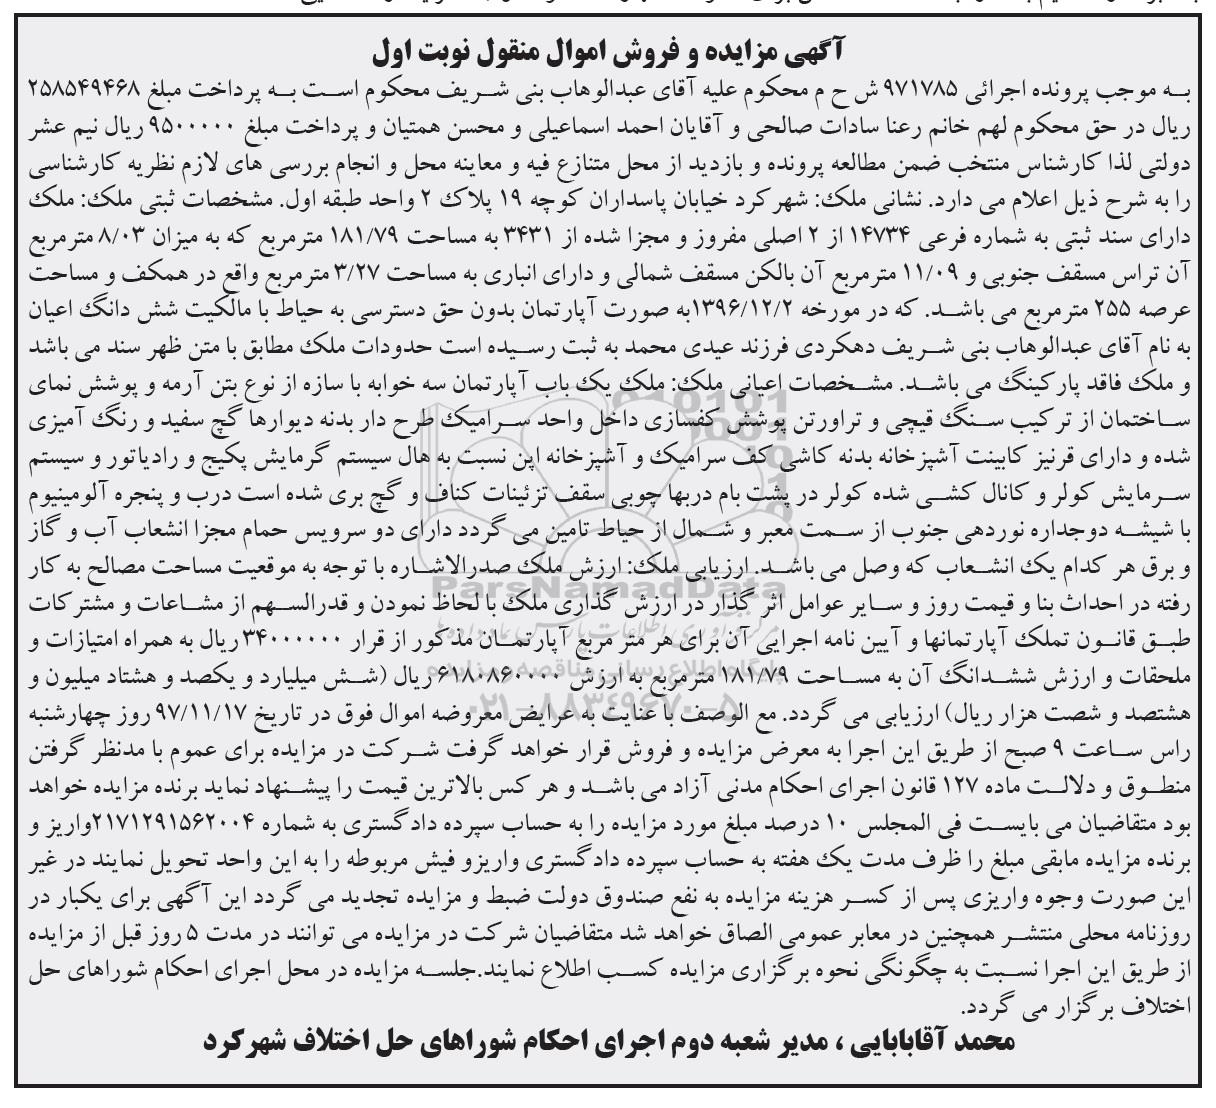 آگهی مزایده و فروش اموال منقول نوبت اول
به موجب پرونده اجرائی ۹۷۱۷۸۵ ش ح م محکوم علیه آقای عبدالوهاب بنی شریف محکوم است به پرداخت مبلغ ۲۵۸۵۴۹۴۶۸
ریال در حق محکوم لهم خانم رعنا سادات صالحی و آقایان احمد اسماعیلی و محسن همتیان و پرداخت مبلغ ۹۵۰۰۰۰۰ ریال نیم عشر
دولتی لذا کارشناس منتخب ضمن مطالعه پرونده و بازدید از محل متنازع فیه و معاینه محل و انجام بررسی های لازم نظریه کارشناسی
را به شرح ذیل اعلام می دارد. نشانی ملک: شهرکرد خیابان پاسداران کوچه ۱۹ پلاک ۲ واحد طبقه اول. مشخصات ثبتی ملک: ملک
دارای سند ثبتی به شماره فرعی ۱۴۷۳۴ از ۲ اصلی مفروز و مجزا شده از ۳۴۳۱ به مساحت ۱۸۱/۷۹ مترمربع که به میزان ۸/۰۳ مترمربع
آن تراس مسقف جنوبی و ۱۱/۰۹ مترمربع آن بالکن مسقف شمالی و دارای انباری به مساحت ۳/۲۷ مترمربع واقع در همکف و مساحت
عرصه ۲۵۵ مترمربع می باشد. که در مورخه ۱۳۹۶/۱۲/۲به صورت آپارتمان بدون حق دسترسی به حیاط با مالکیت شش دانگ اعیان
به نام آقای عبدالوهاب بنی شریف دهکردی فرزند عیدی محمد به ثبت رسیده است حدودات ملک مطابق با متن ظهر سند می باشد
و ملک فاقد پارکینگ می باشد. مشخصات اعیانی ملک: ملک یک باب آپارتمان سه خوابه با سازه از نوع بتن آرمه و پوشش نمای
ساختمان از ترکیب سنگ قیچی و تراورتن پوشش کفسازی داخل واحد سرامیک طرح دار بدنه دیوارها گچ سفید و رنگ آمیزی
شده و دارای قرنیز کابینت آشپزخانه بدنه کاشی کف سرامیک و آشپزخانه اپن نسبت به هال سیستم گرمایش پکیج و رادیاتور و سیستم
سرمایش کولر و کانال کشی شده کولر در پشت بام دربها چوبی سقف تزئینات کناف و گچ بری شده است درب و پنجره آلومینیوم
با شیشه دوجداره نوردهی جنوب از سمت معبر و شمال از حیاط تامین می گردد دارای دو سرویس حمام مجزا انشعاب آب و گاز
و برق هر کدام یک انشعاب که وصل می باشد. ارزیابی ملک: ارزش ملک صدرالاشاره با توجه به موقعیت مساحت مصالح به کار
رفته در احداث بنا و قیمت روز و سایر عوامل اثر گذار در ارزش گذاری ملک با لحاظ نمودن و قدرالسهم از مشاعات و مشترکات
طبق قانون تملک آپارتمانها و آیین نامه اجرایی آن برای هر متر مربع آپارتمان مذکور از قرار ۳۴۰۰۰۰۰۰ ریال به همراه امتیازات و
ملحقات و ارزش ششدانگ آن به مساحت ۱۸۱/۷۹ مترمربع به ارزش ۶۱۸۰۸۶۰۰۰۰ ریال (شش میلیارد و یکصد و هشتاد میلیون و
هشتصد و شصت هزار ریال) ارزیابی می گردد. مع الوصف با عنایت به عرایض معروضه اموال فوق در تاریخ ۹۷/۱۱/۱۷ روز چهارشنبه
راس ساعت ۹ صبح از طریق این اجرا به معرض مزایده و فروش قرار خواهد گرفت شرکت در مزایده برای عموم با مدنظر گرفتن
منطوق و دلالت ماده ۱۲۷ قانون اجرای احکام مدنی آزاد می باشد و هر کس بالاترین قیمت را پیشنهاد نماید برنده مزایده خواهد
بود متقاضیان می بایست فی المجلس ۱۰ درصد مبلغ مورد مزایده را به حساب سپرده دادگستری به شماره ۲۱۷۱۲۹۱۵۶۲۰۰۴واریز و
برنده مزایده مابقی مبلغ را ظرف مدت یک هفته به حساب سپرده دادگستری واریزو فیش مربوطه را به این واحد تحویل نمایند در غیر
این صورت وجوه واریزی پس از کسر هزینه مزایده به نفع صندوق دولت ضبط و مزایده تجدید می گردد این آگهی برای یکبار در
روزنامه محلی منتشر همچنین در معابر عمومی الصاق خواهد شد متقاضیان شرکت در مزایده می توانند در مدت ۵ روز قبل از مزایده
از طریق این اجرا نسبت به چگونگی نحوه برگزاری مزایده کسب اطلاع نمایند.جلسه مزایده در محل اجرای احکام شوراهای حل
اختلاف برگزار می گردد.
محمد آقابابایی ، مدیر شعبه دوم اجرای احکام شوراهای حل اختلاف شهرکرد
ParsNamadData
پایگاه اطلاع رسانی مناقصه و مزایده
۰۲۱-۸۸۳۴۹۶۷۰-۵